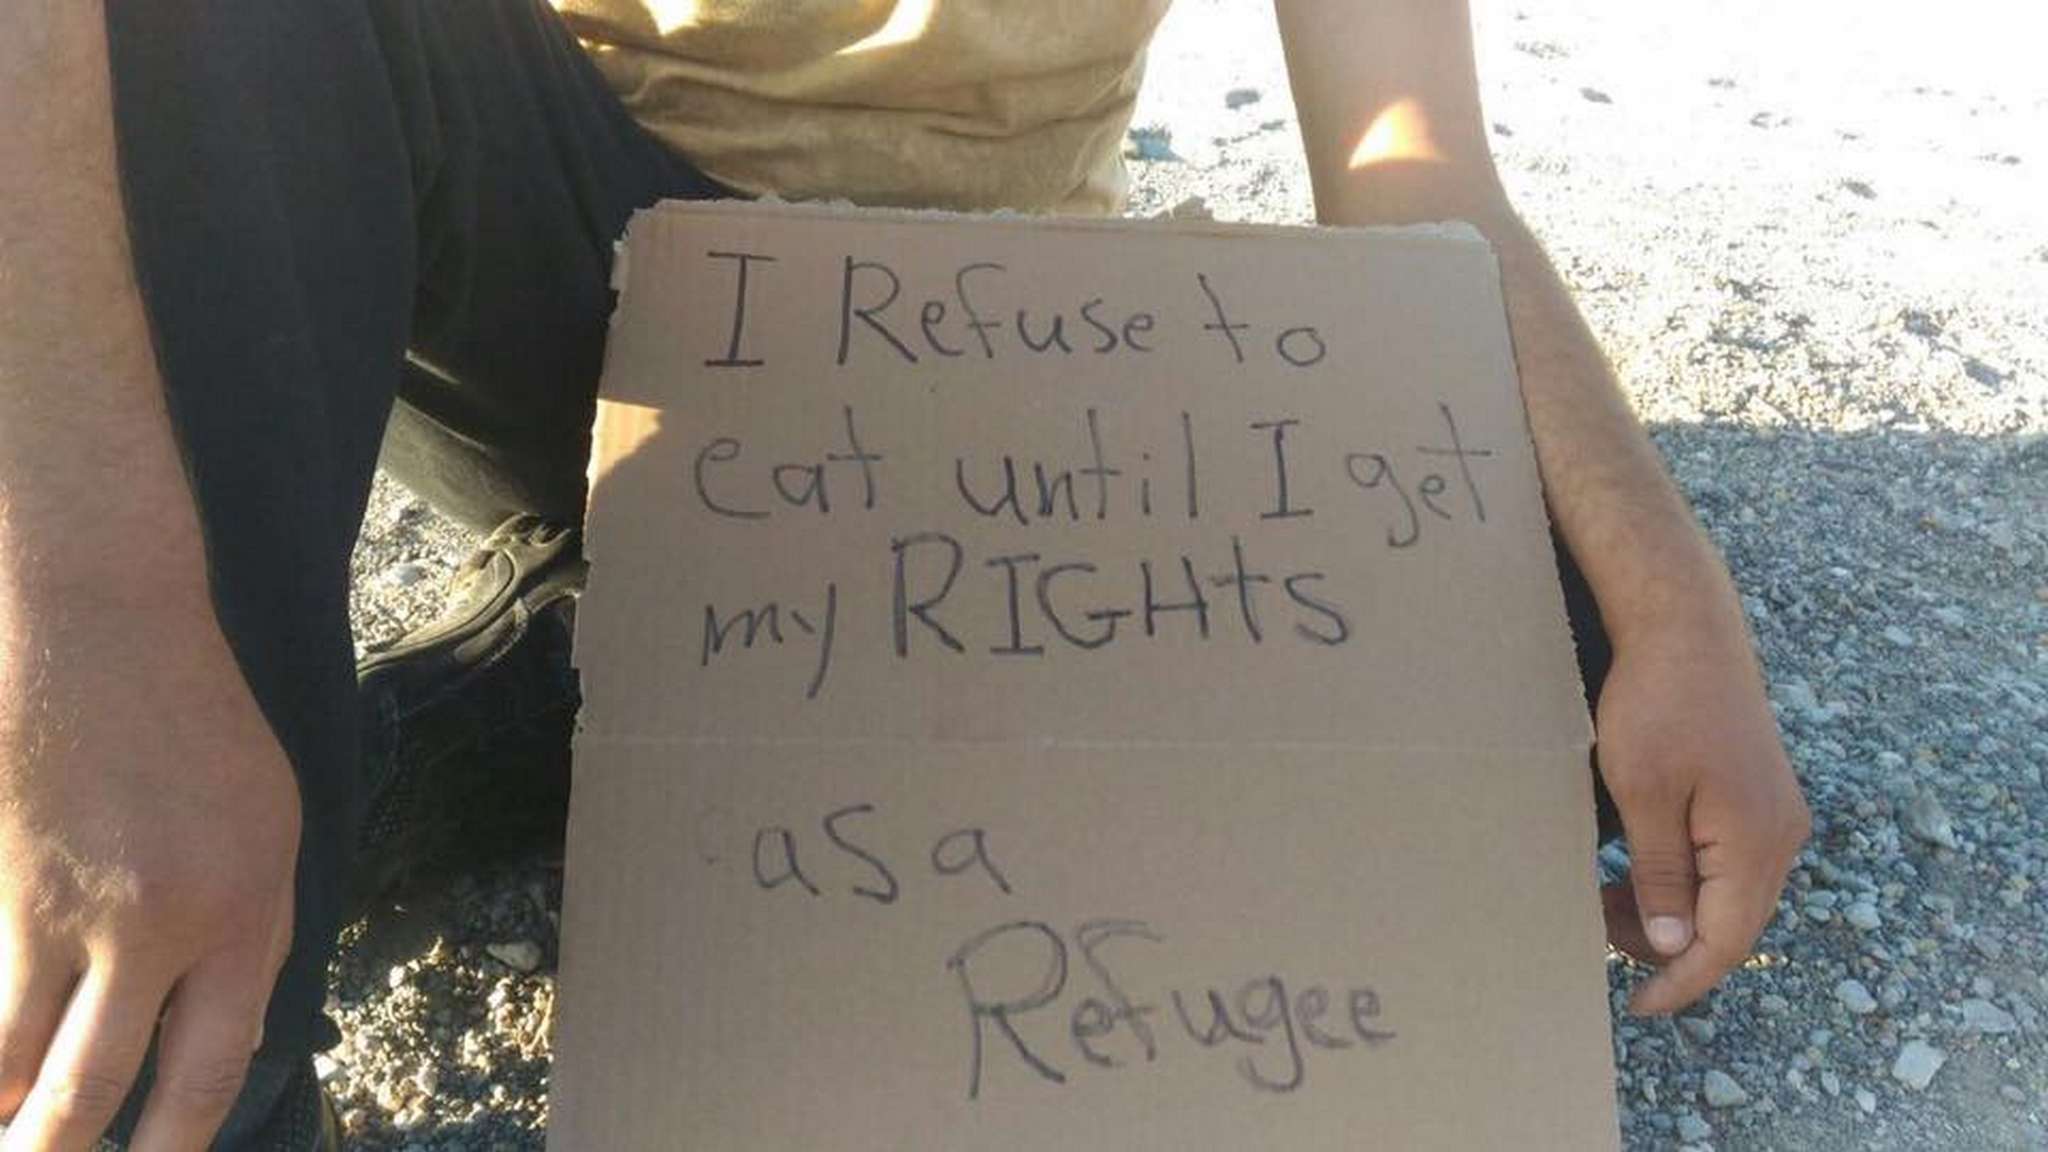 I Refuse to
eat until I get
my RIGHtS
as a
Refugee